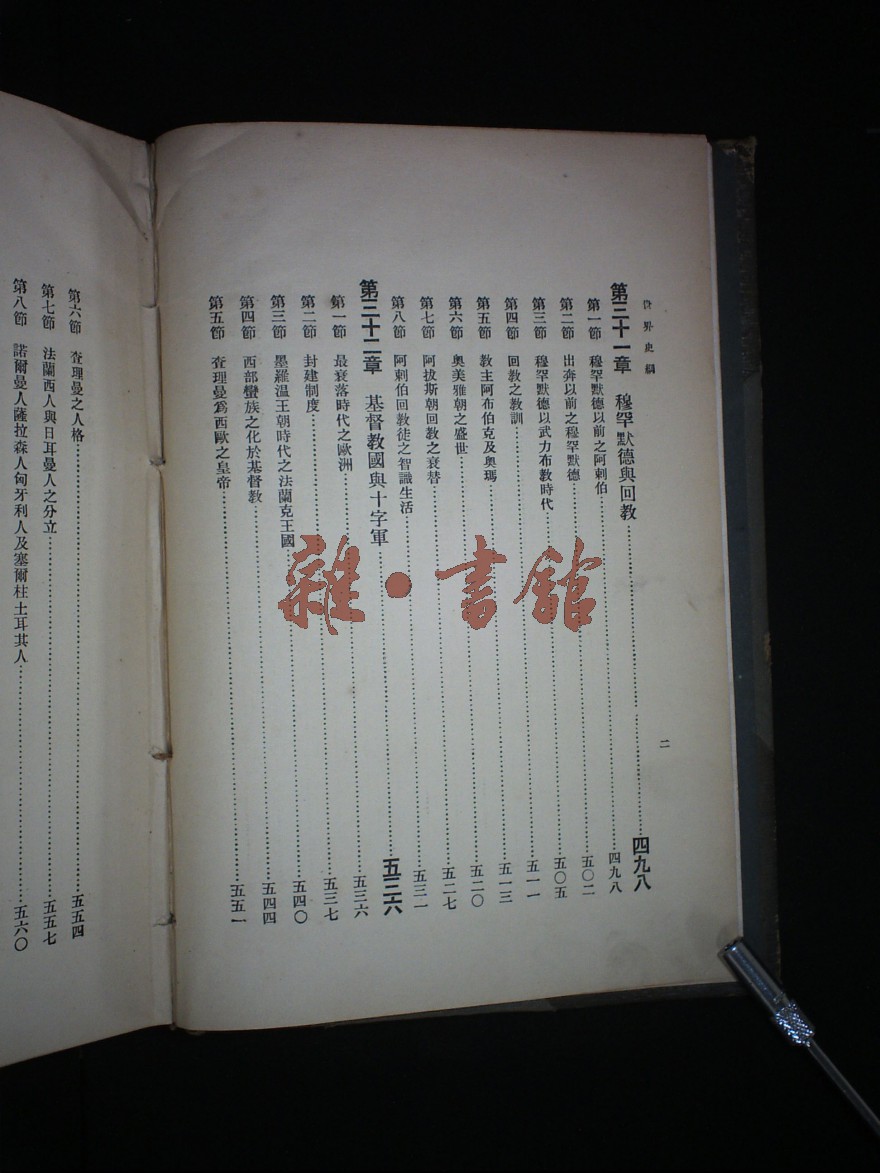 世界史綱
二
第三十一章 穆罕默德與回教……四九八
第一節 穆罕默德以前之阿剌伯……四九八
第二節 出奔以前之穆罕默德……五〇二
第三節 穆罕默德以武力布教時代……五〇五
第四節 回教之教訓……五一一
第五節 教主阿布伯克及奧瑪……五一三
第六節 奧美雅朝之盛世……五二〇
第七節 阿拔斯朝回教之衰替……五二七
第八節 阿剌伯回教徒之智識生活……五三一
第三十二章 基督教國與十字軍……五三六
第一節 最衰落時代之歐洲……五三六
第二節 封建制度……五三七
第三節 墨羅溫王朝時代之法蘭克王國……五四〇
第四節 西部蠻族之化於基督教……五四四
第五節 查理曼爲西歐之皇帝……五五一
第六節 查理曼之人格……五五四
第七節 法蘭西人與日耳曼人之分立……五五七
第八節 諾爾曼人薩拉森人匈牙利人及塞爾柱土耳其人……五六〇
雜·書館